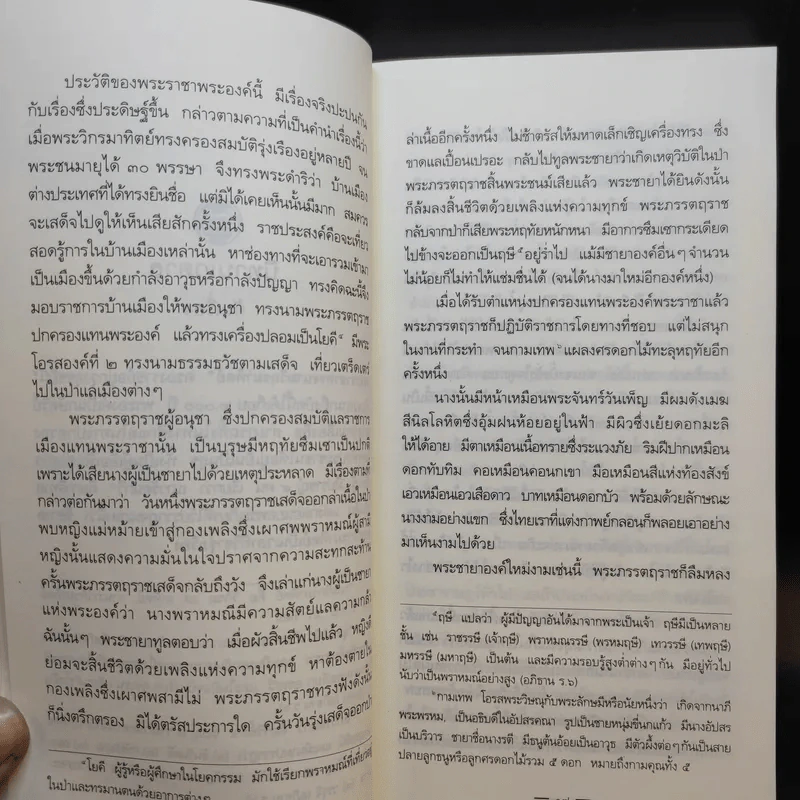 ประวัติของพระราชาพระองค์นี้ มีเรื่องจริงปะปนกัน
กับเรื่องซึ่งประดิษฐ์ขึ้น กล่าวตามความที่เป็นคำนำเรื่องนี้ว่า
เมื่อพระวิกรมาทิตย์ทรงครองสมบัติรุ่งเรืองอยู่หลายปี จน
พระชนมายุได้ ๓๐ พรรษา จึงทรงพระดำริว่า บ้านเมือง
ต่างประเทศที่ได้ทรงยินชื่อ แต่มิได้เคยเห็นนั้นมีมาก สมควร
จะเสด็จไปดูให้เห็นเสียสักครั้งหนึ่ง ราชประสงค์คือจะเที่ยว
สอดรู้การในบ้านเมืองเหล่านั้น หาช่องทางที่จะเอารวมเข้ามา
เป็นเมืองขึ้นด้วยกำลังอาวุธหรือกำลังปัญญา ทรงคิดฉะนี้จึง
มอบราชการบ้านเมืองให้พระอนุชา ทรงนามพระภรรตฤราช
ปกครองแทนพระองค์ แล้วทรงเครื่องปลอมเป็นโยคี มีพระ
โอรสองค์ที่ ๒ ทรงนามธรรมธวัชตามเสด็จ เที่ยวเตร็ดเตร่
ไปในป่าแลเมืองต่างๆ
พระภรรตฤราชผู้อนุชา ซึ่งปกครองสมบัติแลราชการ
เมืองแทนพระราชานั้น เป็นบุรุษมีหฤทัยซึมเซาเป็นปกติ
เพราะได้เสียนางผู้เป็นชายาไปด้วยเหตุประหลาด มีเรื่องตามที่
กล่าวต่อกันมาว่า วันหนึ่งพระภรรตฤราชเสด็จออกล่าเนื้อในป่า
พบหญิงแม่หม้ายเข้าสู่กองเพลิงซึ่งเผาศพพราหมณ์ผู้สามี
หญิงนั้นแสดงความมั่นในใจปราศจากความสะทกสะท้าน
ครั้นพระภรรตฤราชเสด็จกลับถึงวัง จึงเล่าแก่นางผู้เป็นชายา
แห่งพระองค์ว่า นางพราหมณีมีความสัตย์แลความกล้า
ฉันนั้นๆ พระชายาทูลตอบว่า เมื่อผัวสิ้นชีพไปแล้ว หญิงดี
ย่อมจะสิ้นชีวิตด้วยเพลิงแห่งความทุกข์ หาต้องตายใน
กองเพลิงซึ่งเผาศพสามีไม่ พระภรรตฤราชทรงฟังดังนั้น
ก็นิ่งตรึกตรอง มิได้ตรัสประการใด ครั้นวันรุ่งเสด็จออกป่า
โยคี ผู้รู้หรือผู้ศึกษาในโยคกรรม มักใช้เรียกพราหมณ์ที่เที่ยวอยู่
ในป่าและทรมานตนด้วยอาการต่างๆ
ล่าเนื้ออีกครั้งหนึ่ง ไม่ช้าตรัสให้มหาดเล็กเชิญเครื่องทรง ซึ่ง
ขาดแลเปื้อนเปรอะ กลับไปทูลพระชายาว่าเกิดเหตุวิบัติในป่า
พระภรรตฤราชสิ้นพระชนม์เสียแล้ว พระชายาได้ยินดังนั้น
ก็ล้มลงสิ้นชีวิตด้วยเพลิงแห่งความทุกข์ พระภรรตฤราช
กลับจากป่าก็เสียพระหฤทัยหนักหนา มีอาการซึมเซากระเดียด
ไปข้างจะออกเป็นฤษี อยู่ร่ำไป แม้มีชายาองค์อื่นๆ จำนวน
ไม่น้อยก็ไม่ทำให้แช่มชื่นได้ (จนได้นางมาใหม่อีกองค์หนึ่ง)
เมื่อได้รับตำแหน่งปกครองแทนพระองค์พระราชาแล้ว
พระภรรตฤราชก็ปฏิบัติราชการโดยทางที่ชอบ แต่ไม่สนุก
ในงานที่กระทำ จนกามเทพ แผลงศรดอกไม้ทะลุหฤทัยอีก
ครั้งหนึ่ง
นางนั้นมีหน้าเหมือนพระจันทร์วันเพ็ญ มีผมดังเมฆ
สีนิลโลหิตซึ่งอุ้มฝนห้อยอยู่ในฟ้า มีผิวซึ่งเย้ยดอกมะลิ
ให้ได้อาย มีตาเหมือนเนื้อทรายซึ่งระแวงภัย ริมฝีปากเหมือน
ดอกทับทิม คอเหมือนคอนกเขา มือเหมือนสีแห่งท้องสังข์
เอวเหมือนเอวเสือดาว บาทเหมือนดอกบัว พร้อมด้วยลักษณะ
นางงามอย่างแขก ซึ่งไทยเราที่แต่งกาพย์กลอนก็พลอยเอาอย่าง
มาเห็นงามไปด้วย
พระชายาองค์ใหม่งามเช่นนี้ พระภรรตฤราชก็ลืมหลง
ฤษี แปลว่า ผู้มีปัญญาอันได้มาจากพระเป็นเจ้า ฤษีมีเป็นหลาย
ชั้น เช่น ราชรรษี (เจ้าฤษี) พราหมณรรษี (พรหมฤษี) เทวรรษี (เทพฤษี)
มหรรษี (มหาฤษี) เป็นต้น และมีความรอบรู้สูงต่ำต่างๆ กัน มีอยู่ทั่วไป
นับว่าเป็นพราหมณ์อย่างสูง (อภิธาน ร.๖)
กามเทพ โอรสพระวิษณุกับพระลักษมีหรือนัยหนึ่งว่า เกิดจากนาภี
พระพรหม, เป็นอธิบดีในอัปสรคณา รูปเป็นชายหนุ่มขี่นกแก้ว มีนางอัปสร
เป็นบริวาร ชายาชื่อนางรตี มีธนูต้นอ้อยเป็นอาวุธ มีตัวผึ้งต่อๆ กันเป็นสาย
ปลายลูกธนูหรือลูกศรดอกไม้รวม ๕ ดอก หมายถึงกามคุณทั้ง ๕